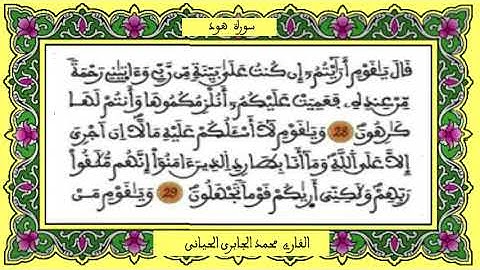 سورة هود
قَالَ يَٰقَوْمِ أَرَٰٓيْتُمُۥٓ إِن كُنتُ عَلَىٰ بَيِّنَةٍ مِّن رَّبِّي وَءَاتَيٰنِي رَحْمَةً
مِّنْ عِندِهِۦ فَعَمِيَتْ عَلَيْكُمُۥٓ أَنُلْزِمُكُمُوهَا وَأَنتُمْ لَهَا
كَٰرِهُونَ 28 وَيَٰقَوْمِ لَآ أَسْـَٔلُكُمْ عَلَيْهِ مَالًا اِنَ اَجْرِيَ
إِلَّا عَلَى اَللَّهِ وَمَآ أَنَا بِطَارِدِ اِلذِينَ ءَامَنُوٓاْ إِنَّهُم مُّلَٰقُواْ
رَبِّهِمْ وَلَٰكِنِّيَ أَرَىٰكُمْ قَوْمًا تَجْهَلُونَ 29 وَيَٰقَوْمِ مَنْ
القارئ محمد الجابري الحياني